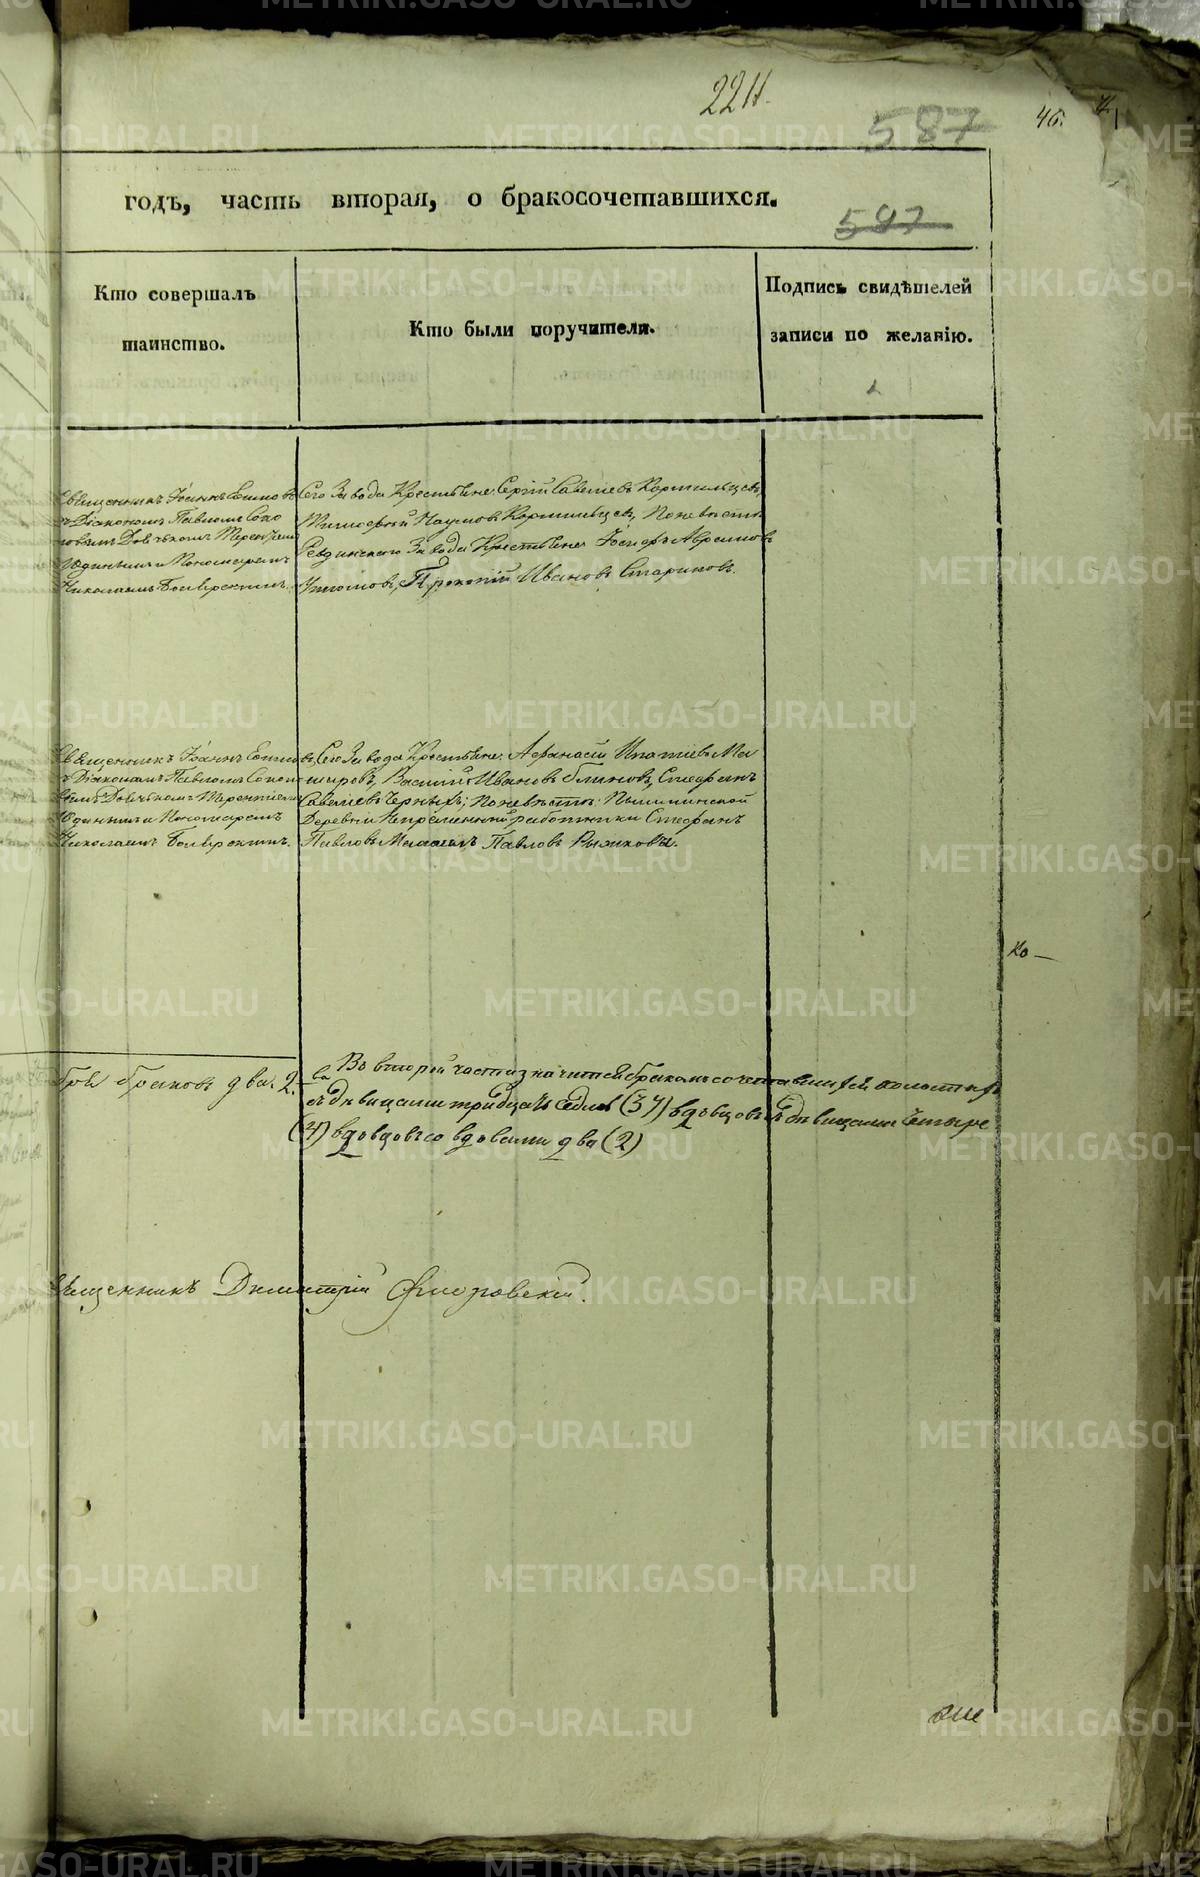 224.
587
46.
годъ, часть вторая, о бракосочетавшихся.
587
Кто совершалъ таинство.
Кто были поручители.
Подпись свидѣтелей записи по желанію.
Священникъ Іоаннъ
съ Діакономъ Павломъ Соко
ловымъ Дьячькомъ Терентіем
и Пономаремъ
Николаемъ
Сего Завода Крестьяне: Сергій Савеліевъ Кормильцевъ,
Тимофей Наумовъ Кормильцевъ, По невѣстѣ
Ревдинскаго Завода Крестьяне Іосифъ Авраамовъ
Утюмовъ, Прокопій Ивановъ Стариковъ.
Священникъ Іоаннъ
съ Діакономъ Павломъ Соколо
вымъ Дьячькомъ Терентіемъ
и Пономаремъ
Николаемъ
Сего Завода Крестьяне: Афанасій Ипатіевъ Ма
шаровъ, Василій Ивановъ Блиновъ, Стефанъ
Савеліевъ Черныхъ; По невѣстѣ: Пышминской
Деревни Непременный работники Стефанъ
Павловъ Павловъ Рыжковы.
Ко —
браковъ два. 2.
Въ второй части значится бракомъ сочетавшихся холостыхъ
съ дѣвицами тридцать седмь (37) вдовцовъ съ дѣвицами четыре
(4) вдовцовъ со вдовами два (2)
Священникъ Димитрій Флоровскій.